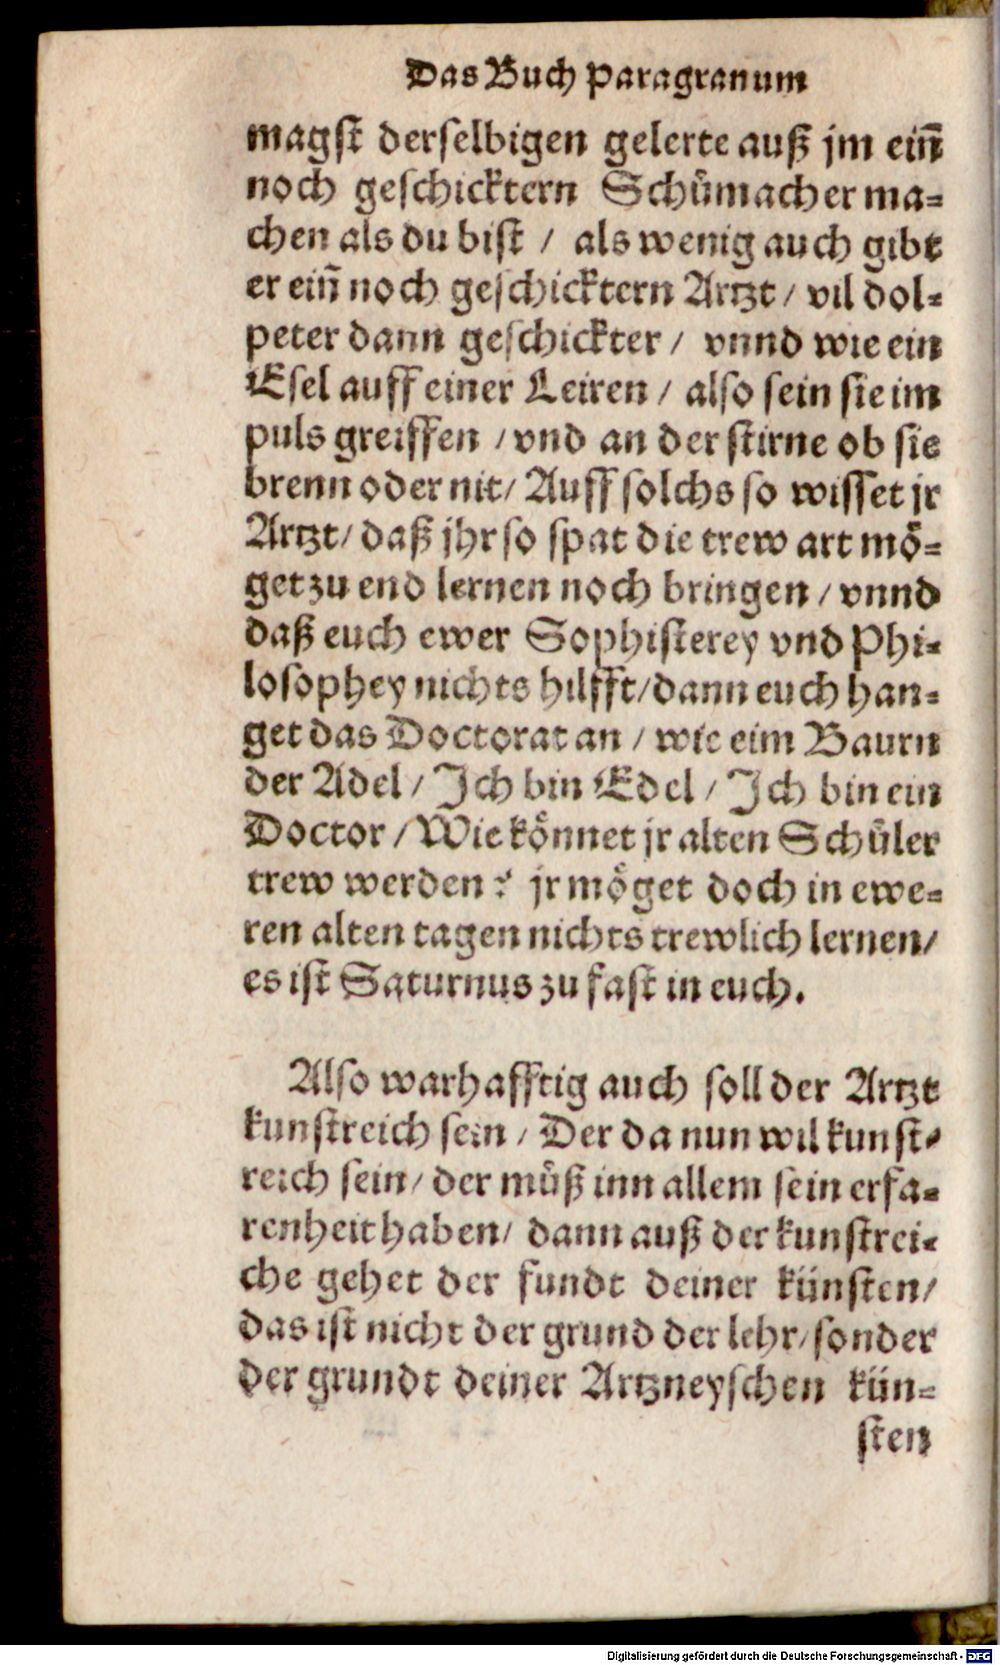 Das Buch Paragranum
magst derselbigen gelerte auß jm ein̄
noch geschicktern Schůmacher ma-
chen als du bist / als wenig auch gibt
er ein̄ noch geschicktern Artzt / vil dol-
peter dann geschickter / vnnd wie ein
Esel auff einer Leiren / also sein sie im
puls greiffen / vnd an der stirne ob sie
brenn oder nit / Auff solchs so wisset jr
Artzt / daß jhr so spat die trew art mö-
get zu end lernen noch bringen / vnnd
daß euch ewer Sophisterey vnd Phi-
losophey nichts hilfft / dann euch han-
get das Doctorat an / wie eim Baurn
der Adel / Ich bin Edel / Ich bin ein
Doctor / Wie könnet jr alten Schüler
trew werden? jr möget doch in ewe-
ren alten tagen nichts trewlich lernen /
es ist Saturnus zu fast in euch.
Also warhafftig auch soll der Artzt
kunstreich sein / Der da nun wil kunst-
reich sein / der můß inn allem sein erfa-
renheit haben / dann auß der kunstrei-
che gehet der fundt deiner künsten /
das ist nicht der grund der lehr / sonder
der grundt deiner Artzneyschen kün-
sten
Digitalisierung gefördert durch die Deutsche Forschungsgemeinschaft - DFG